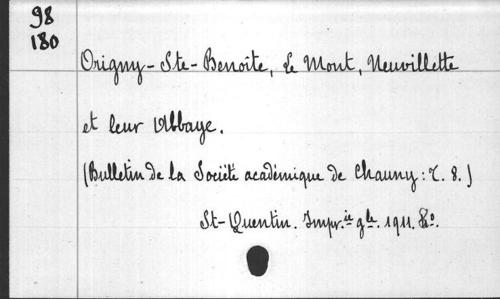 98
180
Origny-Ste-Benoîte, Le Mont, Neuvillette
et leur Abbaye.
(Bulletin de la Société académique de Chauny : T. 8.)
St-Quentin. Impr.ie gle. 1911. 8o.